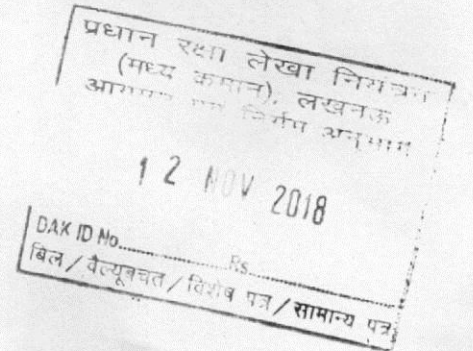 प्रधान रक्षा लेखा नियंत्रक
(मध्य कमान), लखनऊ
आगमन एवं निर्गम अनुभाग
12 NOV 2018
DAK ID No.............. Rs..............
बिल/वैल्यूबचत/विशेष पत्र/सामान्य पत्र